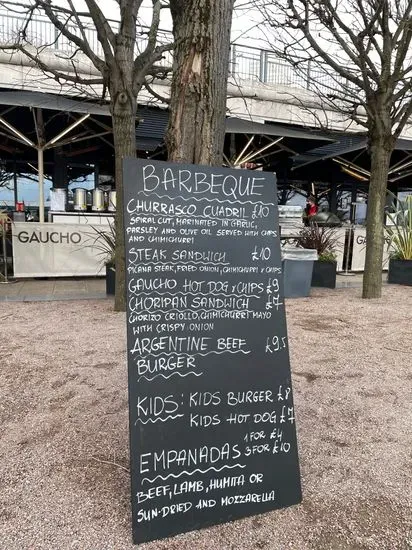 BARBEQUE
CHURRASCO CUADRIL £10
SPIRAL CUT, MARINATED IN GARLIC,
PARSLEY AND OLIVE OIL SERVED WITH CHIPS
AND CHIMICHURRI
STEAK SANDWICH £10
PICANA STEAK, FRIED ONION, CHIMICHURRI & CHIPS
GAUCHO HOT DOG & CHIPS £9
CHORIPAN SANDWICH £7
CHORIZO CRIOLLO, CHIMICHURRI MAYO
WITH CRISPY ONION
ARGENTINE BEEF £9.5
BURGER
KIDS: KIDS BURGER £8
KIDS HOT DOG £7
EMPANADAS 1 FOR £4
3 FOR £10
BEEF, LAMB, HUMITA OR
SUN-DRIED AND MOZZARELLA
GAUCHO